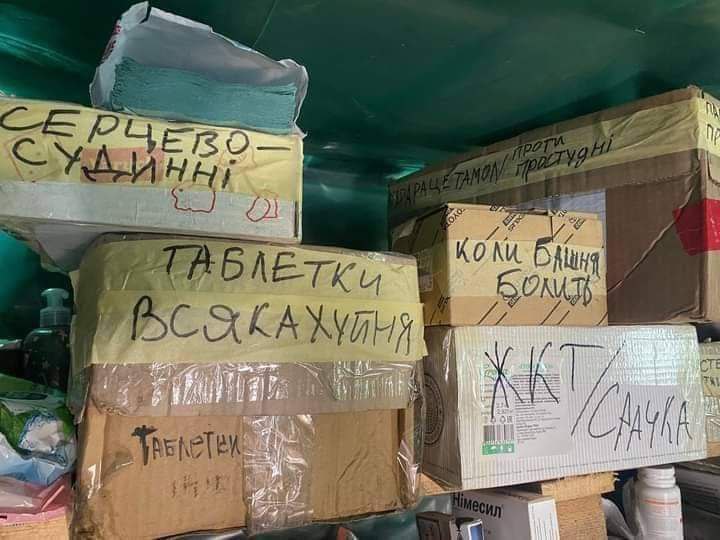 СЕРЦЕВО-
СУДИННІ
ТАБЛЕТКИ
ВСЯКА ХУЙНЯ
Таблетки
ПАРАЦЕТАМОЛ/ПРОТИ
ПРОСТУДНІ
КОЛИ БАШНЯ
БОЛИТЬ
ЖКТ/
СРАЧКА
Німесил